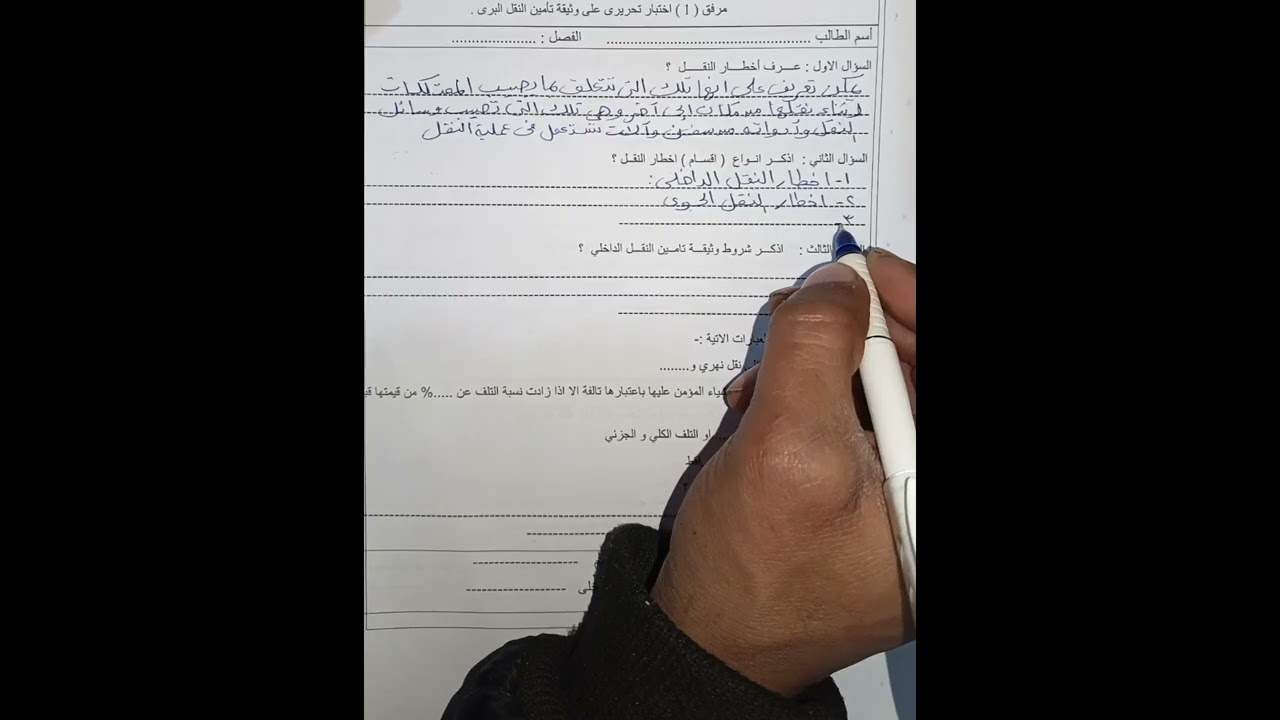 مرفق ( 1 ) اختبار تحريرى على وثيقة تأمين النقل البرى .
أسم الطالب ................................................ الفصل : .....................
السؤال الاول : عـــرف أخطـــار النقـــل ؟
يمكن تعريف على انها تلك التى تتعلق بما يصيب الممتلكات
اثناء نقلها من مكان إلى آخر وهى تلك التى تصيب وسائل
النقل وأدواته من سفن وآلات تستعمل فى عملية النقل
السؤال الثاني : اذكــر انــواع ( اقســام ) اخطار النقــل ؟
١- اخطار النقل الداخلى :
٢- اخطار النقل الجوى
٣-
الثالث : اذكــر شروط وثيقــة تامــين النقــل الداخلي ؟
لعبارات الاتية :-
نقل نهري و........
المؤمن عليها باعتبارها تالفة الا اذا زادت نسبة التلف عن .....% من قيمتها
او التلف الكلي و الجزئي
؟